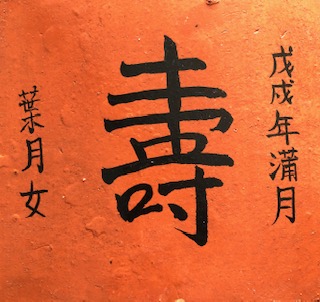 戊戌年滿月
壽
葉月女